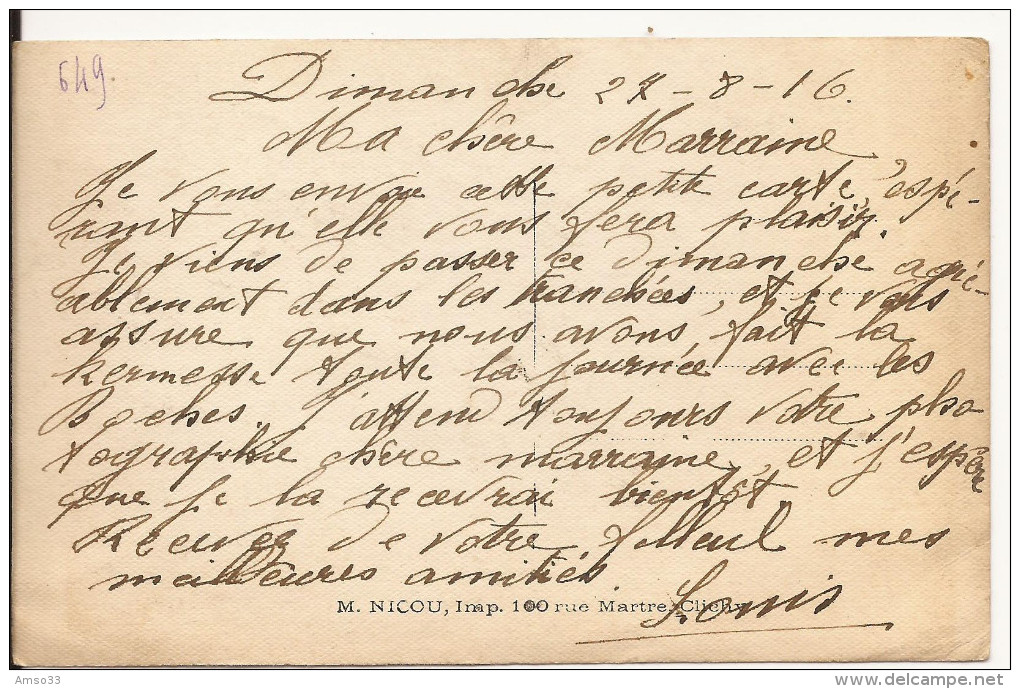 649.
Dimanche 27-8-16.
Ma chère Marraine,
Je vous envoie cette petite carte, espé-
rant qu'elle vous fera plaisir.
Je viens de passer ce dimanche agré-
ablement dans les tranchées, et je vous
assure que nous avons fait la
kermesse toute la journée avec les
Boches. J'attend toujours votre pho-
tographie chère marraine, et j'espère
que je la recevrai bientôt.
Recevez de votre filleul mes
meilleures amitiés.
Louis
M. NICOU, Imp. 100 rue Martre, Clichy
Amso33
www.delcampe.net